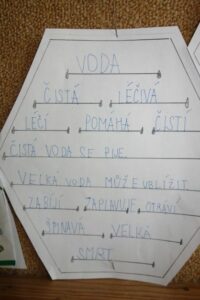 VODA
ČISTÁ LÉČIVÁ
LÉČÍ POMÁHÁ ČISTÍ
ČISTÁ VODA SE PIJE.
VELKÁ VODA MŮŽE UBLÍŽIT
ZABÍJÍ ZAPLAVUJE OTRÁVÍ
ŠPINAVÁ VELKÁ
SMRT